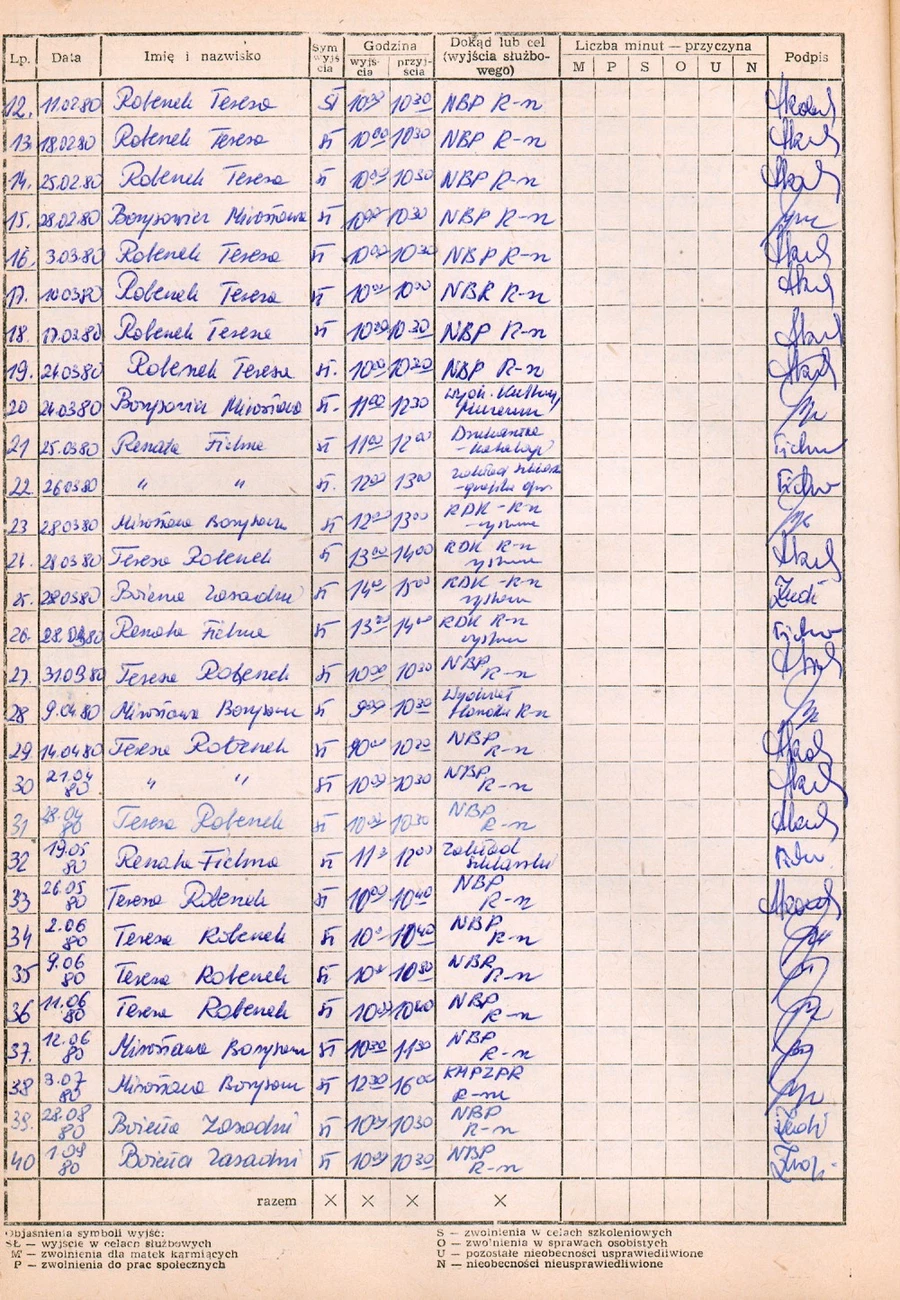 Lp. Data Imię i nazwisko Sym wyjścia Godzina wyjścia przyjścia Dokąd lub cel (wyjścia służbowego) Liczba minut — przyczyna M P S O U N Podpis
12. 11.02.80 Robenek Teresa Sł 10 00 10 30 NBP R-n
13. 18.02.80 Robenek Teresa Sł 10 00 10 30 NBP R-n
14. 25.02.80 Robenek Teresa Sł 10 00 10 30 NBP R-n
15. 28.02.80 Mirosława Sł 10 00 10 30 NBP R-n
16. 3.03.80 Robenek Teresa Sł 10 00 10 30 NBP R-n
17. 10.03.80 Robenek Teresa Sł 10 00 NBP R-n
18. 17.03.80 Robenek Teresa Sł 10 00 10 30 NBP R-n
19. 24.03.80 Robenek Teresa Sł. 10 00 10 30 NBP R-n
20 24.03.80 Mirosława Sł. 11 00 12 30 Wydz. Kultury, Muzeum
21 25.03.80 Renata Fichna Sł 11 00 12 00
22. 26.03.80 " " Sł. 12 00 13 00
23 28.03.80 Mirosława Sł 12 00 13 00 RDK - R-n
24. 28.03.80 Teresa Robenek Sł 13 00 14 00 RDK R-n
25. 28.03.80 Bożena Zasadni Sł 14 00 15 00 RDK - R-n
26. 28.03.80 Renata Fichna Sł 13 00 14 00 RDK R-n
27. 31.03.80 Teresa Robenek Sł 10 00 10 30 NBP R-n
28 9.04.80 Mirosława Sł 9 00 10 30 Wydział Handlu R-n
29 14.04.80 Teresa Robenek Sł 10 00 NBP R-n
30 21.04 80 " " Sł 10 00 10 30 NBP R-n
31 28.04 80 Teresa Robenek Sł 10 00 10 30 NBP R-n
32 19.05 80 Renata Fichna Sł 12 00 Zakład Szklarski
33 26.05 80 Teresa Robenek Sł 10 00 10 40 NBP R-n
34 2.06 80 Teresa Robenek Sł 10 40 NBP R-n
35 9.06 80 Teresa Robenek Sł NBP R-n
36 11.06 80 Teresa Robenek Sł 10 00 10 40 NBP R-n
37. 12.06 80 Mirosława Sł 10 30 11 30 NBP R-n
38 3.07 80 Mirosława Sł 12 30 16 00 KMPZPR R-n
39. 28.08 80 Bożena Zasadni Sł 10 30 NBP R-n
40 1.09 80 Bożena Zasadni Sł 10 00 10 30 NBP R-n
razem × × × ×
Objaśnienia symboli wyjść:
SŁ — wyjście w celach służbowych
M — zwolnienia dla matek karmiących
P — zwolnienia do prac społecznych
S — zwolnienia w celach szkoleniowych
O — zwolnienia w sprawach osobistych
U — pozostałe nieobecności usprawiedliwione
N — nieobecności nieusprawiedliwione